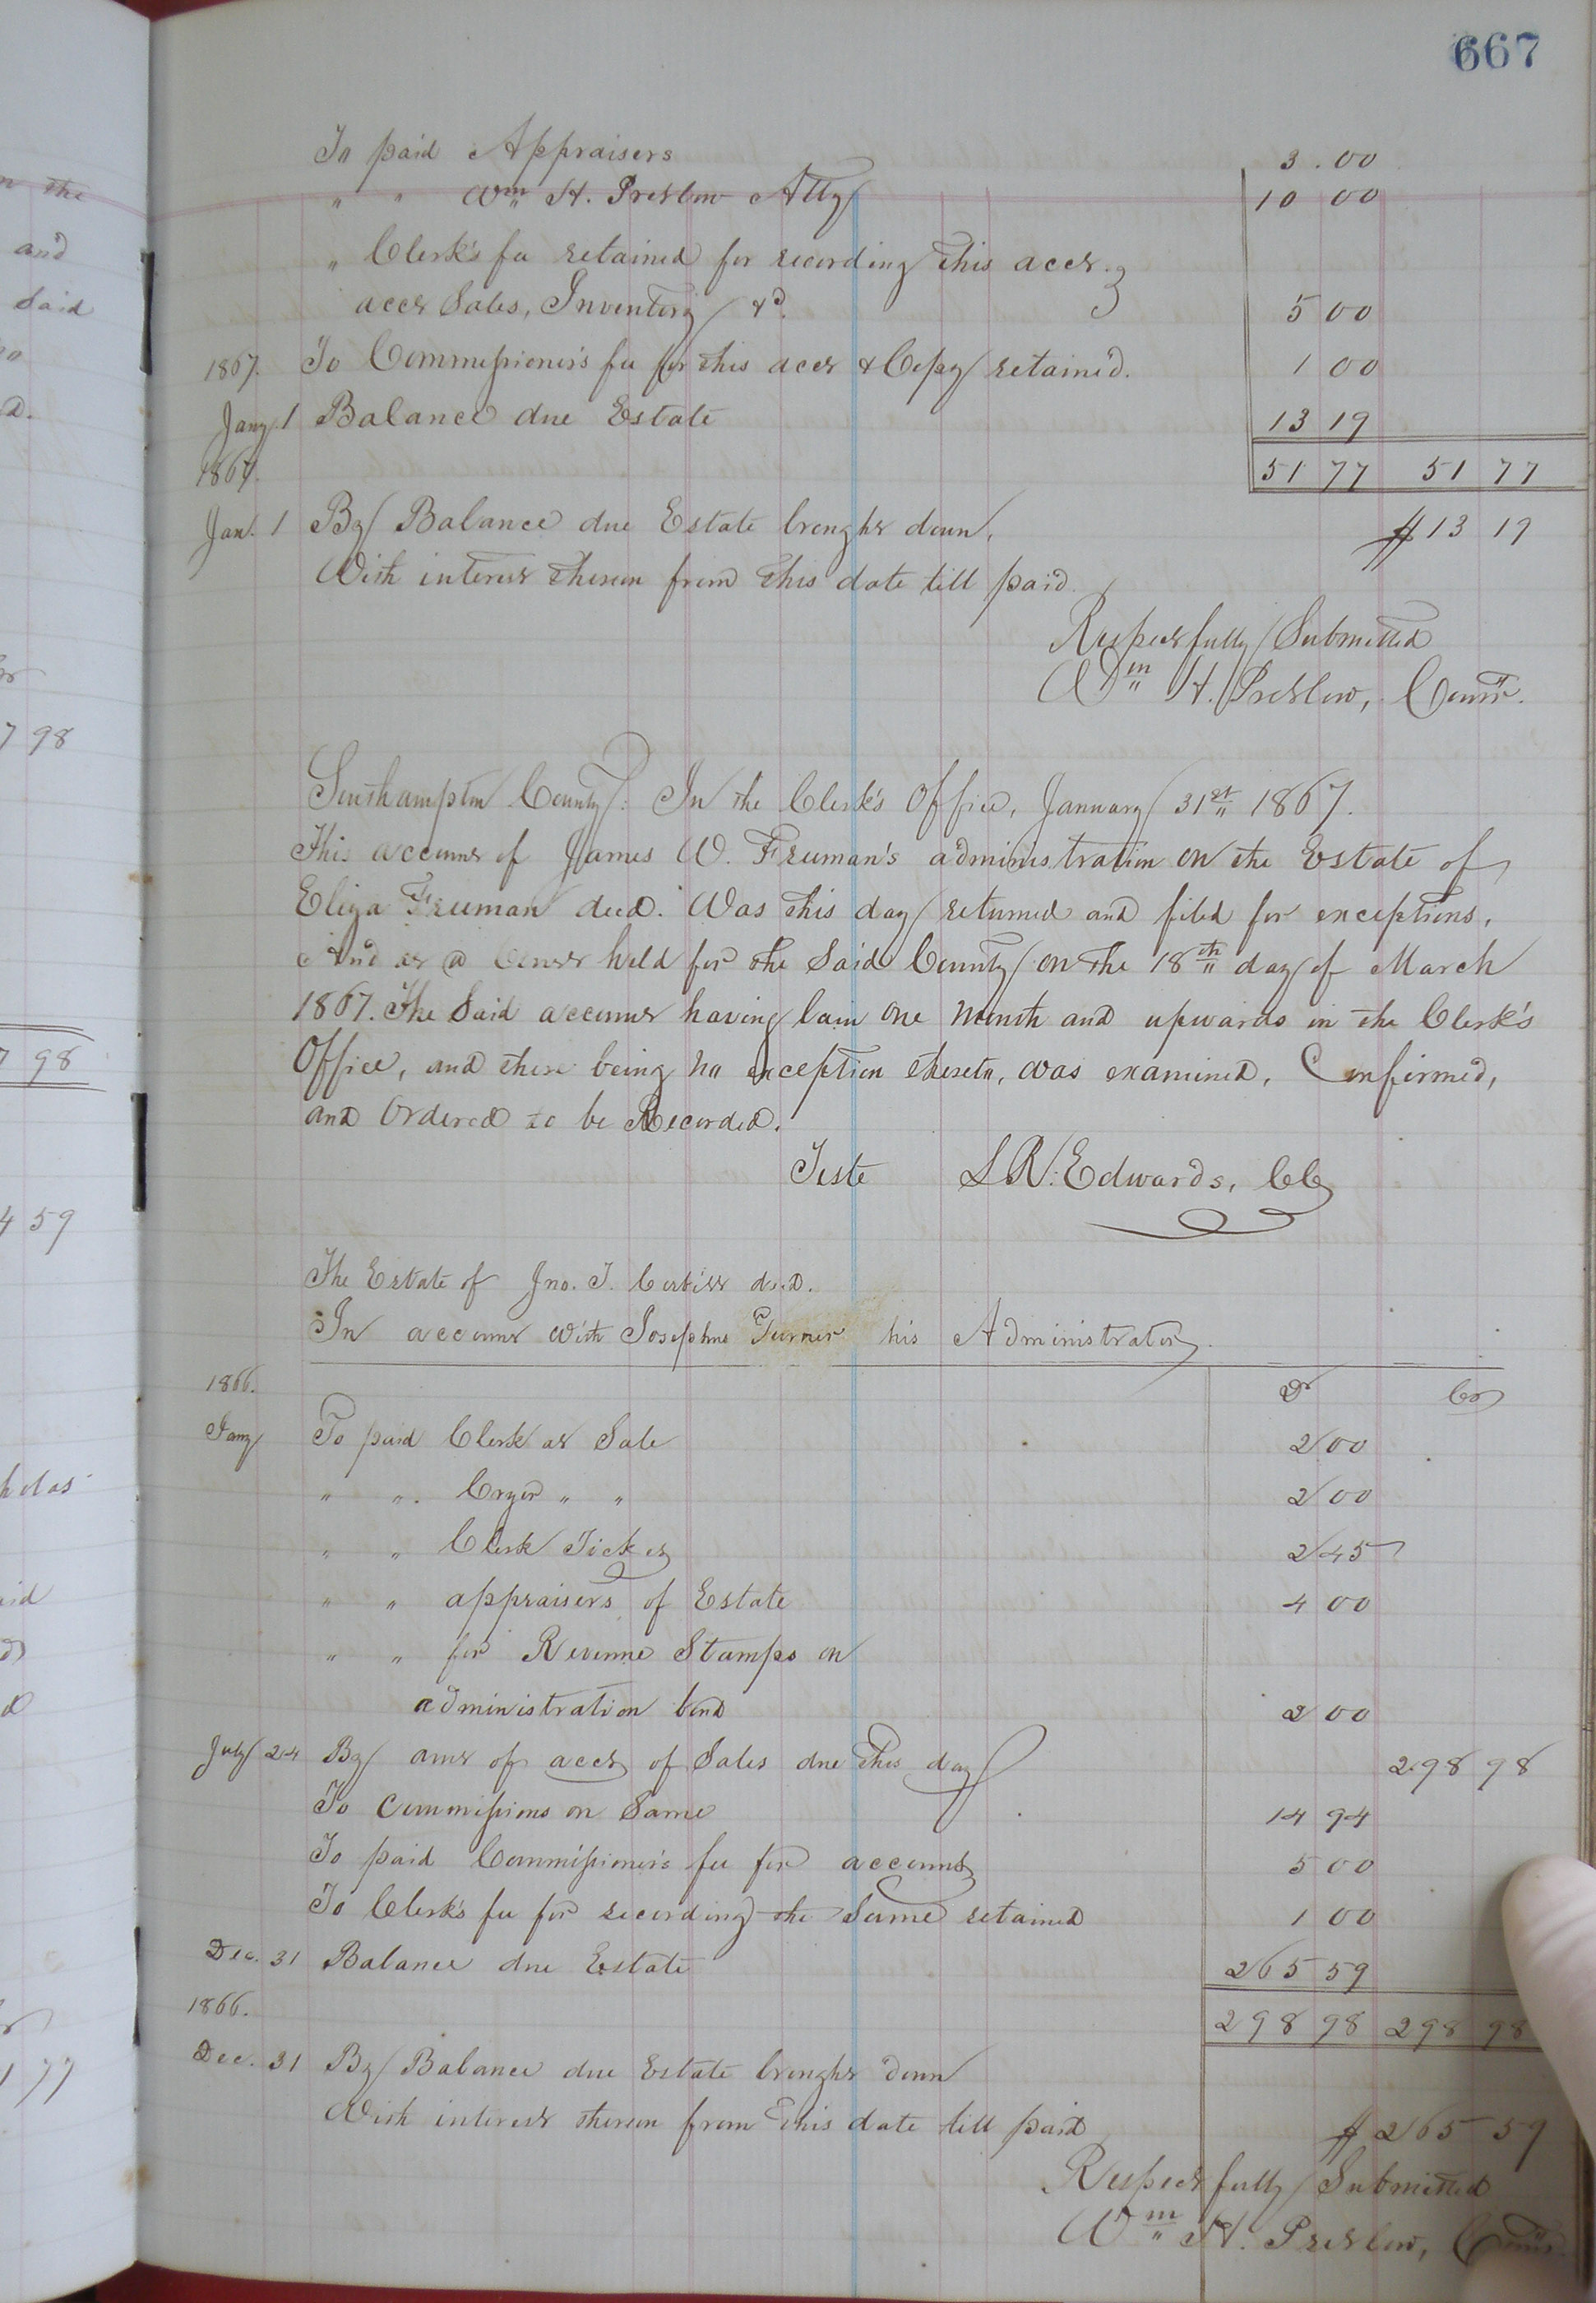 667
To paid Appraisers 3.00
" " Wm H. Pretlow Atty 10 00
" Clerk's fee retained for recording this acct.
acct Sales, Inventory &c. 5 00
1867. To Commissioner's fee for this acct & Copy retained. 1 00
Jany 1 Balance due Estate 13 19
1867. 51 77 51 77
Jan. 1 By Balance due Estate brought down, $13 19
With interest thereon from this date till paid.
Respectfully Submitted
Wm H. Pretlow, Commr.
Southampton County: In the Clerk's Office, January 31st 1867.
This account of James W. Freeman's administration on the Estate of
Eliza Freeman decd. Was this day returned and filed for exceptions,
And at a Court held for the Said County on the 18th day of March
1867. The Said account having lain one Month and upwards in the Clerk's
Office, and there being no exception thereto, was examined, Confirmed,
and Ordered to be Recorded.
Teste L R. Edwards, CC
The Estate of Jno. T. decd.
In account with Josephus Turner his Administrator.
1866. Dr Cr
Jany To paid Clerk at Sale 2 00
" " Cryer " " 2 00
" " Clerk Ticket 2 45
" " appraisers of Estate 4 00
" " for Revenue Stamps on
administration bond 2 00
July 24 By amt of acct of Sales due this day 298 98
To Commissions on Same 14 94
To paid Commissioner's fee for account 5 00
To Clerk's fee for recording the Same retained 1 00
Dec. 31 Balance due Estate 265 59
1866. 298 98 298 98
Dec. 31 By Balance due Estate brought down
With interest thereon from this date till paid $265 59
Respectfully Submitted
Wm H. Pretlow,
and
Said
7 98
7 98
4 59
77